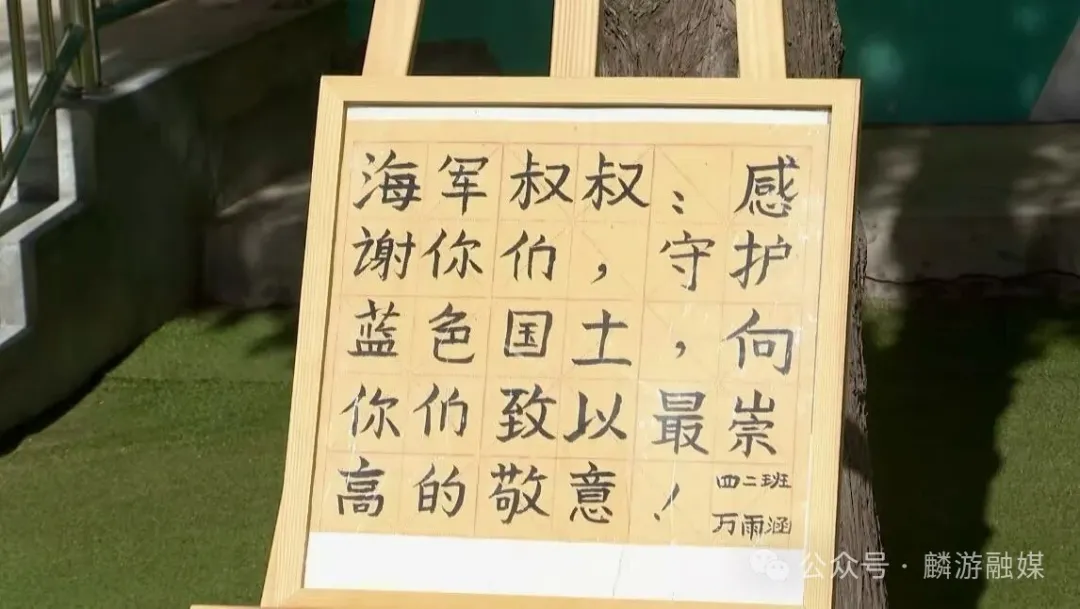 海军叔叔：感
谢你们，守护
蓝色国土，向
你们致以最崇
高的敬意！
四二班
万雨涵
公众号·麟游融媒